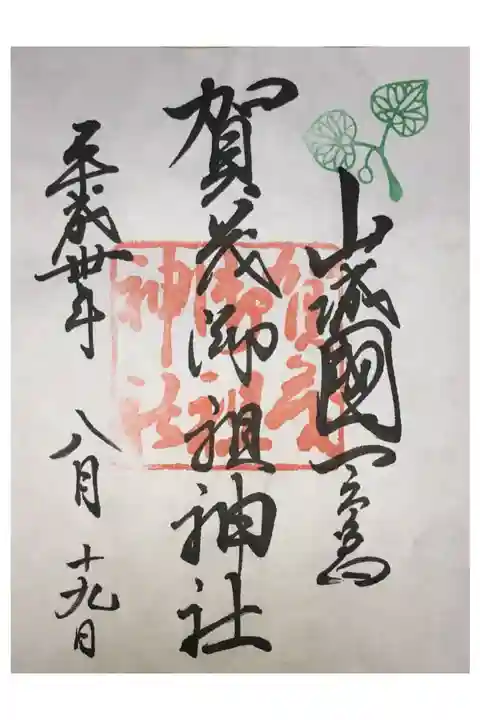 山城國一之宮
賀茂御祖神社
平成卅年
八月
十九日
賀茂
御祖
神社